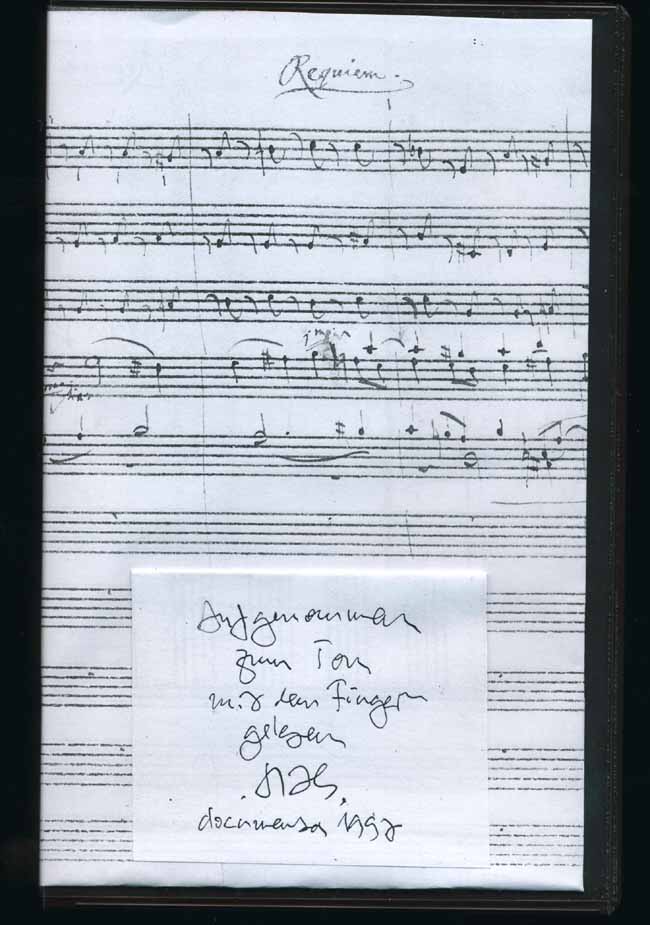 Requiem.
Aufgenommen
zum Ton
mit dem Finger
gelesen
documenta 1997